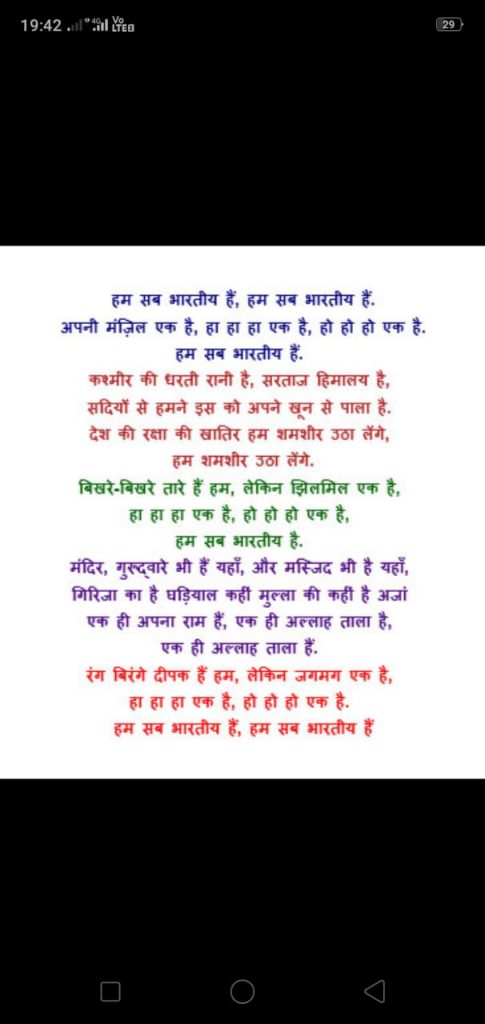 19:42 4G Vo LTE 29
हम सब भारतीय हैं, हम सब भारतीय हैं.
अपनी मंज़िल एक है, हा हा हा एक है, हो हो हो एक है.
हम सब भारतीय हैं.
कश्मीर की धरती रानी है, सरताज हिमालय है,
सदियों से हमने इस को अपने खून से पाला है.
देश की रक्षा की खातिर हम शमशीर उठा लेंगे,
हम शमशीर उठा लेंगे.
बिखरे-बिखरे तारे हैं हम, लेकिन झिलमिल एक है,
हा हा हा एक है, हो हो हो एक है,
हम सब भारतीय है.
मंदिर, गुरुद्वारे भी हैं यहाँ, और मस्जिद भी है यहाँ,
गिरिजा का है घड़ियाल कहीं मुल्ला की कहीं है अजां
एक ही अपना राम हैं, एक ही अल्लाह ताला है,
एक ही अल्लाह ताला हैं.
रंग बिरंगे दीपक हैं हम, लेकिन जगमग एक है,
हा हा हा एक है, हो हो हो एक है.
हम सब भारतीय हैं, हम सब भारतीय हैं